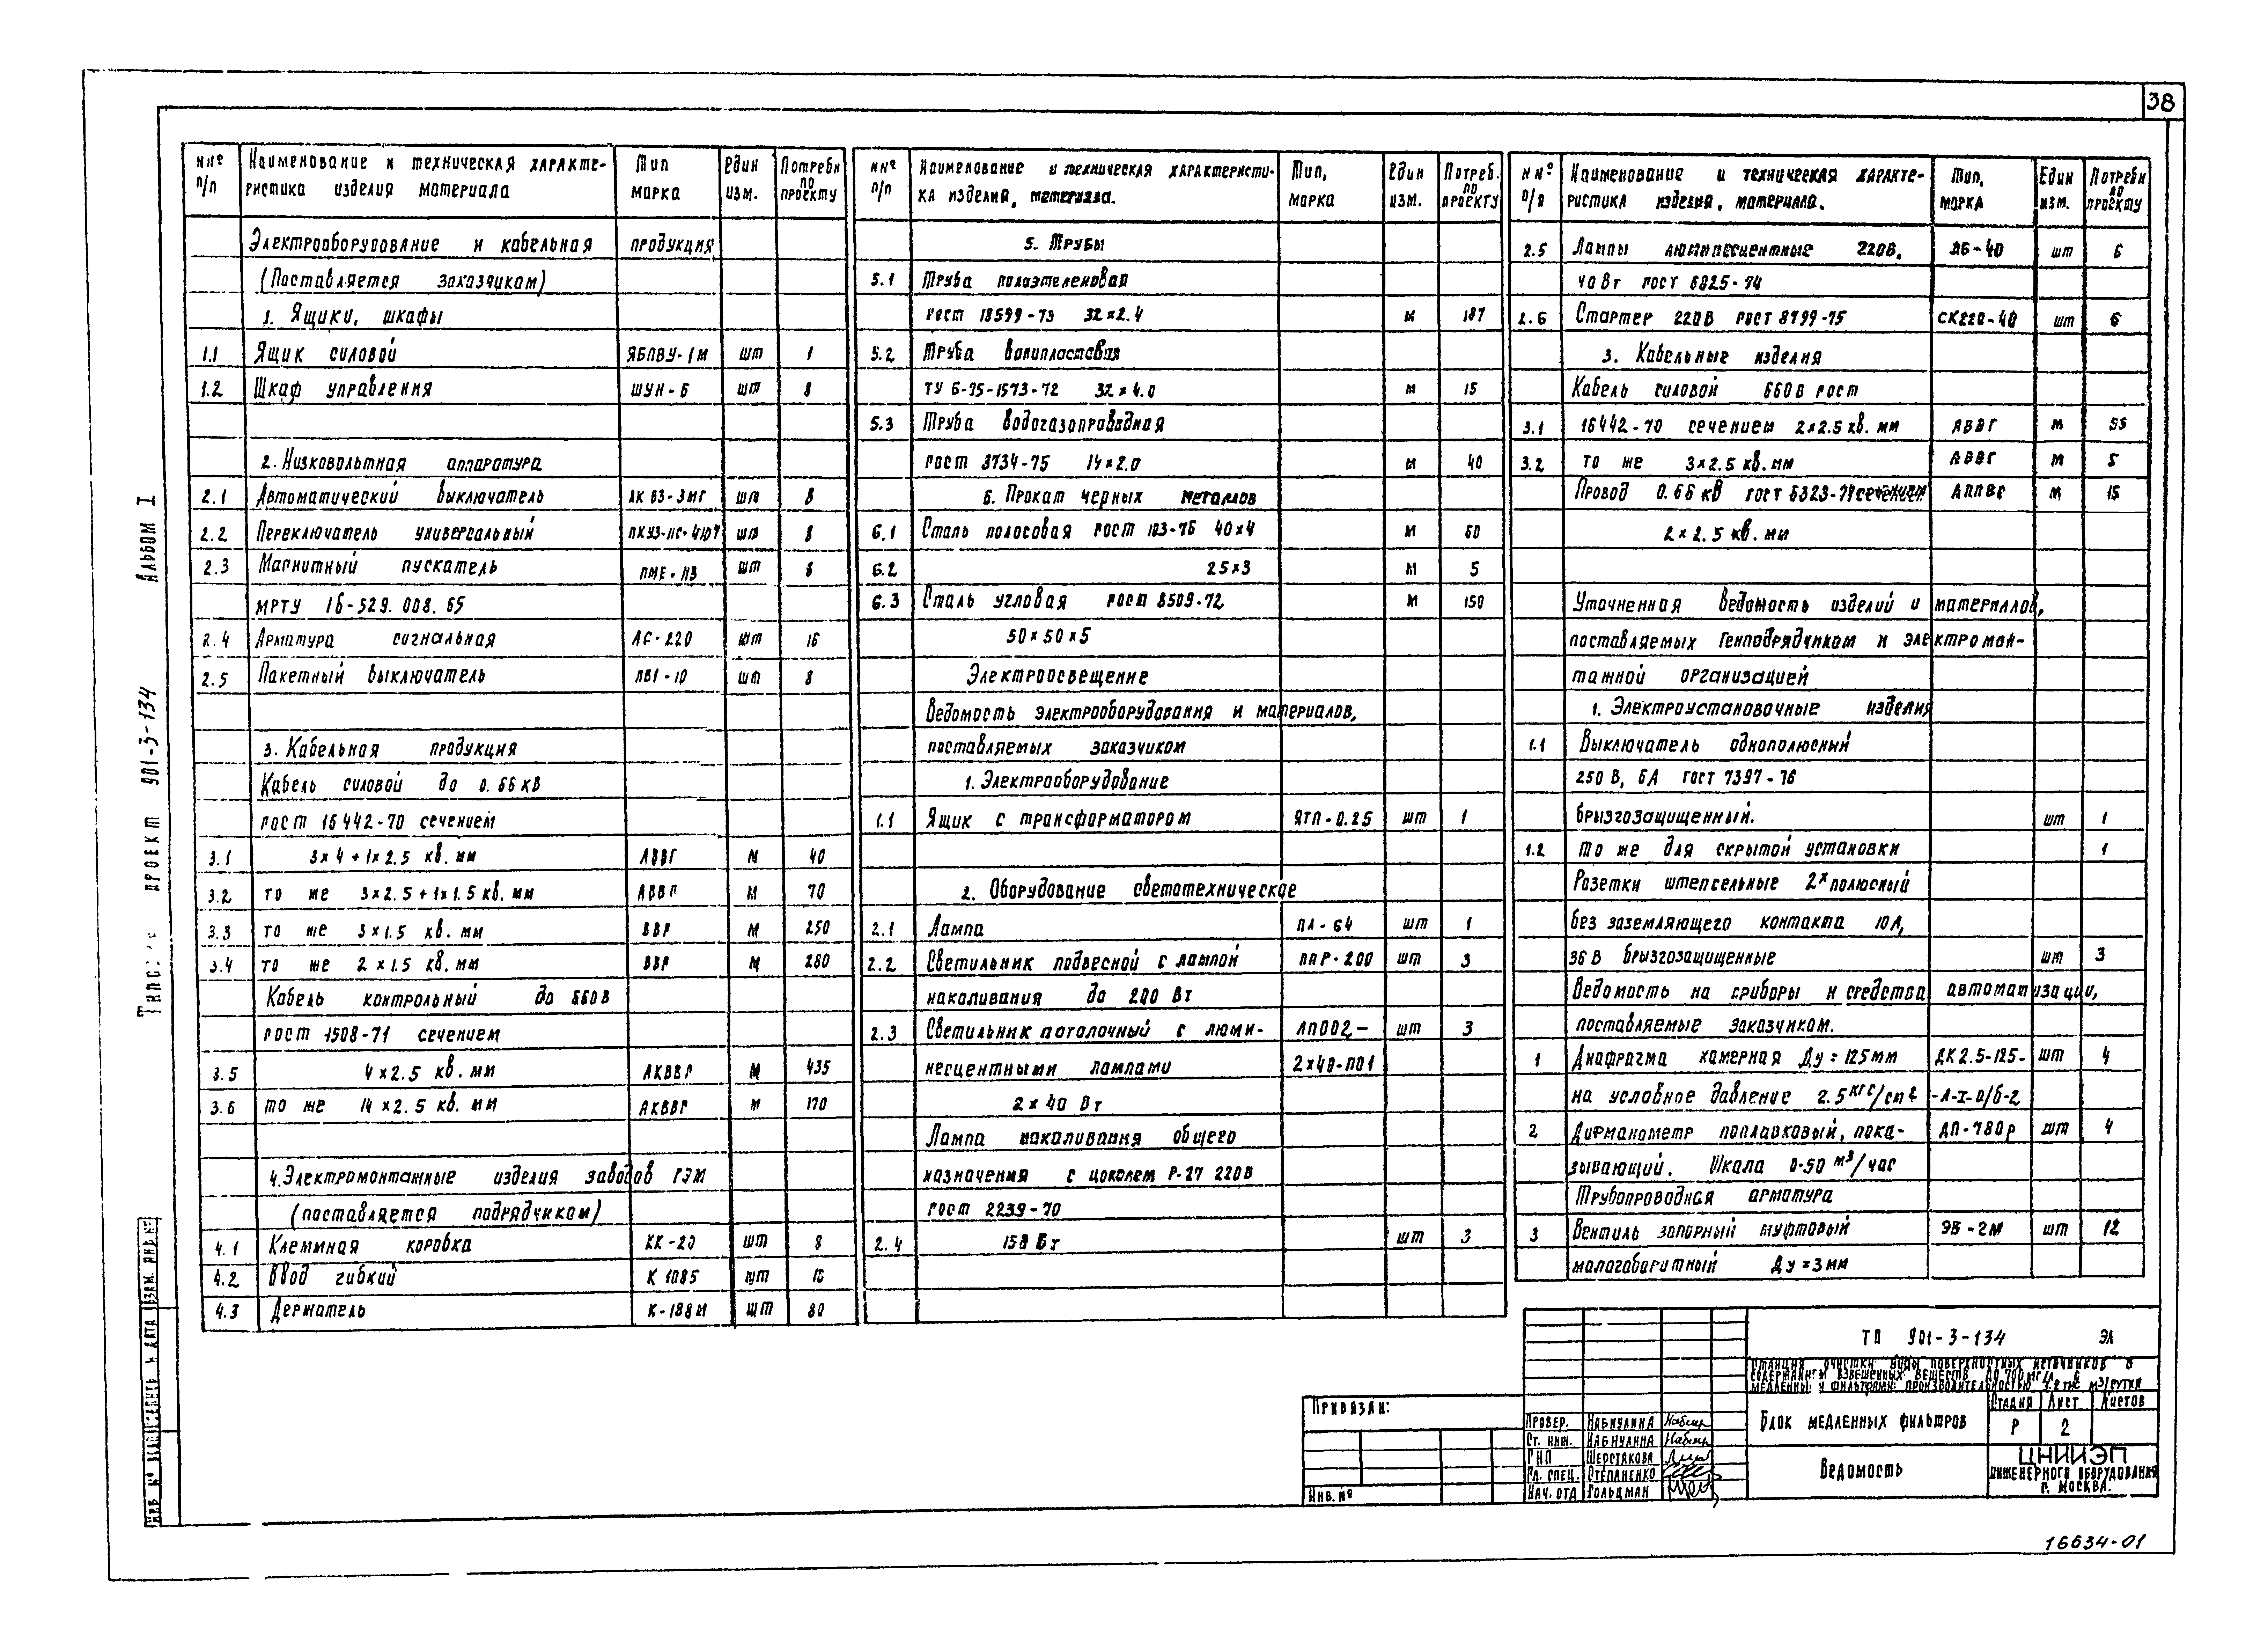 38
Альбом I
Типовой проект 901-3-134
NNº п/п | Наименование и техническая характе-ристика изделия материала | Тип марка | Един изм. | Потребн по проекту
Электрооборудование и кабельная продукция
(Поставляется заказчиком)
1. Ящики, шкафы
1.1 Ящик силовой ЯБПВУ-1М шт 1
1.2 Шкаф управления ШУН-6 шт 8
2. Низковольтная аппаратура
2.1 Автоматический выключатель АК 63-3МГ шт 8
2.2 Переключатель универсальный шт 8
2.3 Магнитный пускатель ПМЕ-113 шт 8
МРТУ 16-529.008.65
2.4 Арматура сигнальная АС-220 шт 16
2.5 Пакетный выключатель ПВ1-10 шт 8
3. Кабельная продукция
Кабель силовой до 0.66 кВ
гост 16442-70 сечением
3.1 3×4+1×2.5 кв. мм АВВГ м 40
3.2 то же 3×2.5+1×1.5 кв. мм АВВГ м 70
3.3 то же 3×1.5 кв. мм ВВГ м 250
3.4 то же 2×1.5 кв. мм ВВГ м 280
Кабель контрольный до 660 В
гост 1508-71 сечением
3.5 4×2.5 кв. мм АКВВГ м 435
3.6 то же 14×2.5 кв. мм АКВВГ м 170
4. Электромонтажные изделия заводов ГЭМ
(поставляется подрядчиком)
4.1 Клеммная коробка КК-20 шт 8
4.2 Ввод гибкий К 1085 шт
4.3 Держатель К-188М шт 80
NNº п/п | Наименование и техническая характеристи-ка изделия, материала. | Тип, марка | Един изм. | Потреб. по проекту
5. Трубы
5.1 Труба полиэтеленовая
гост 18599-73 32×2.4 м 187
5.2 Труба винипластавая
ТУ 6-15-1573-72 32×4.0 м 15
5.3 Труба водогазопроводная
гост 8734-75 14×2.0 м 40
6. Прокат черных металлов
6.1 Сталь полосовая гост 103-76 40×4 м 60
6.2 25×3 м 5
6.3 Сталь угловая гост 8509-72 м 150
50×50×5
Электроосвещение
Ведомость электрооборудования и материалов,
поставляемых заказчиком
1. Электрооборудование
1.1 Ящик с трансформатором ЯТП-0.25 шт 1
2. Оборудование светотехническое
2.1 Лампа ПЛ-64 шт 1
2.2 Светильник подвесной с лампой ППР-200 шт 3
накаливания до 200 Вт
2.3 Светильник потолочный с люми- ЛП002- шт 3
несцентными лампами 2×40-П01
2×40 Вт
Лампа накаливания общего
назначения с цоколем Р-27 220В
гост 2239-70
2.4 150 Вт шт 3
NNº п/п | Наименование и техническая характе-ристика изделия, материала. | Тип, марка | Един изм. | Потребн по проекту
2.5 Лампы люминесцентные 220В, ЛБ-40 шт 6
40 Вт гост 6825-74
2.6 Стартер 220В гост 8799-75 СК220-40 шт 6
3. Кабельные изделия
Кабель силовой 660В гост
3.1 16442-70 сечением 2×2.5 кв. мм АВВГ м 55
3.2 то же 3×2.5 кв. мм АВВГ м 5
Провод 0.66 кв гост 6323-71 сечением АППВС м 15
2×2.5 кв. мм
Уточненная ведомость изделий и материалов,
поставляемых Генподрядчиком и электромон-
тажной организацией
1. Электроустановочные изделия
1.1 Выключатель однополюсный
250 В, 6А гост 7397-76
брызгозащищенный. шт 1
1.2 то же для скрытой установки 1
Розетки штепсельные 2х полюсный
без заземляющего контакта 10А,
36 В брызгозащищенные шт 3
Ведомость на приборы и средства автоматизации,
поставляемые заказчиком.
1 Диафрагма камерная Ду=125мм ДК2.5-125- шт 4
на условное давление 2.5 кгс/см2 -А-I-а/б-2
2 Дифманометр поплавковый, пока- ДП-780р шт 4
зывающий. Шкала 0-50 м³/час
Трубопроводная арматура
3 Вентиль запорный муфтовый ЭВ-2М шт 12
малогабаритный Ду=3мм
ТП 901-3-134 ЭЛ
Станция очистки воды поверхностных источников с
содержанием взвешенных веществ до 700 мг/л с
медленными фильтрами производительностью 3.2 тыс м3/сутки
Блок медленных фильтров
Стадия Лист Листов
Р 2
Ведомость
ЦНИИЭП
инженерного оборудования
г. Москва.
Привязан:
Инв. №
Провер. Набиулина
Ст. инж. Набиулина
ГИП Шерстякова
Гл. спец. Степаненко
Нач. отд Гольцман
Взам. инв №
Подпись и дата
Инв № подл
16634-01